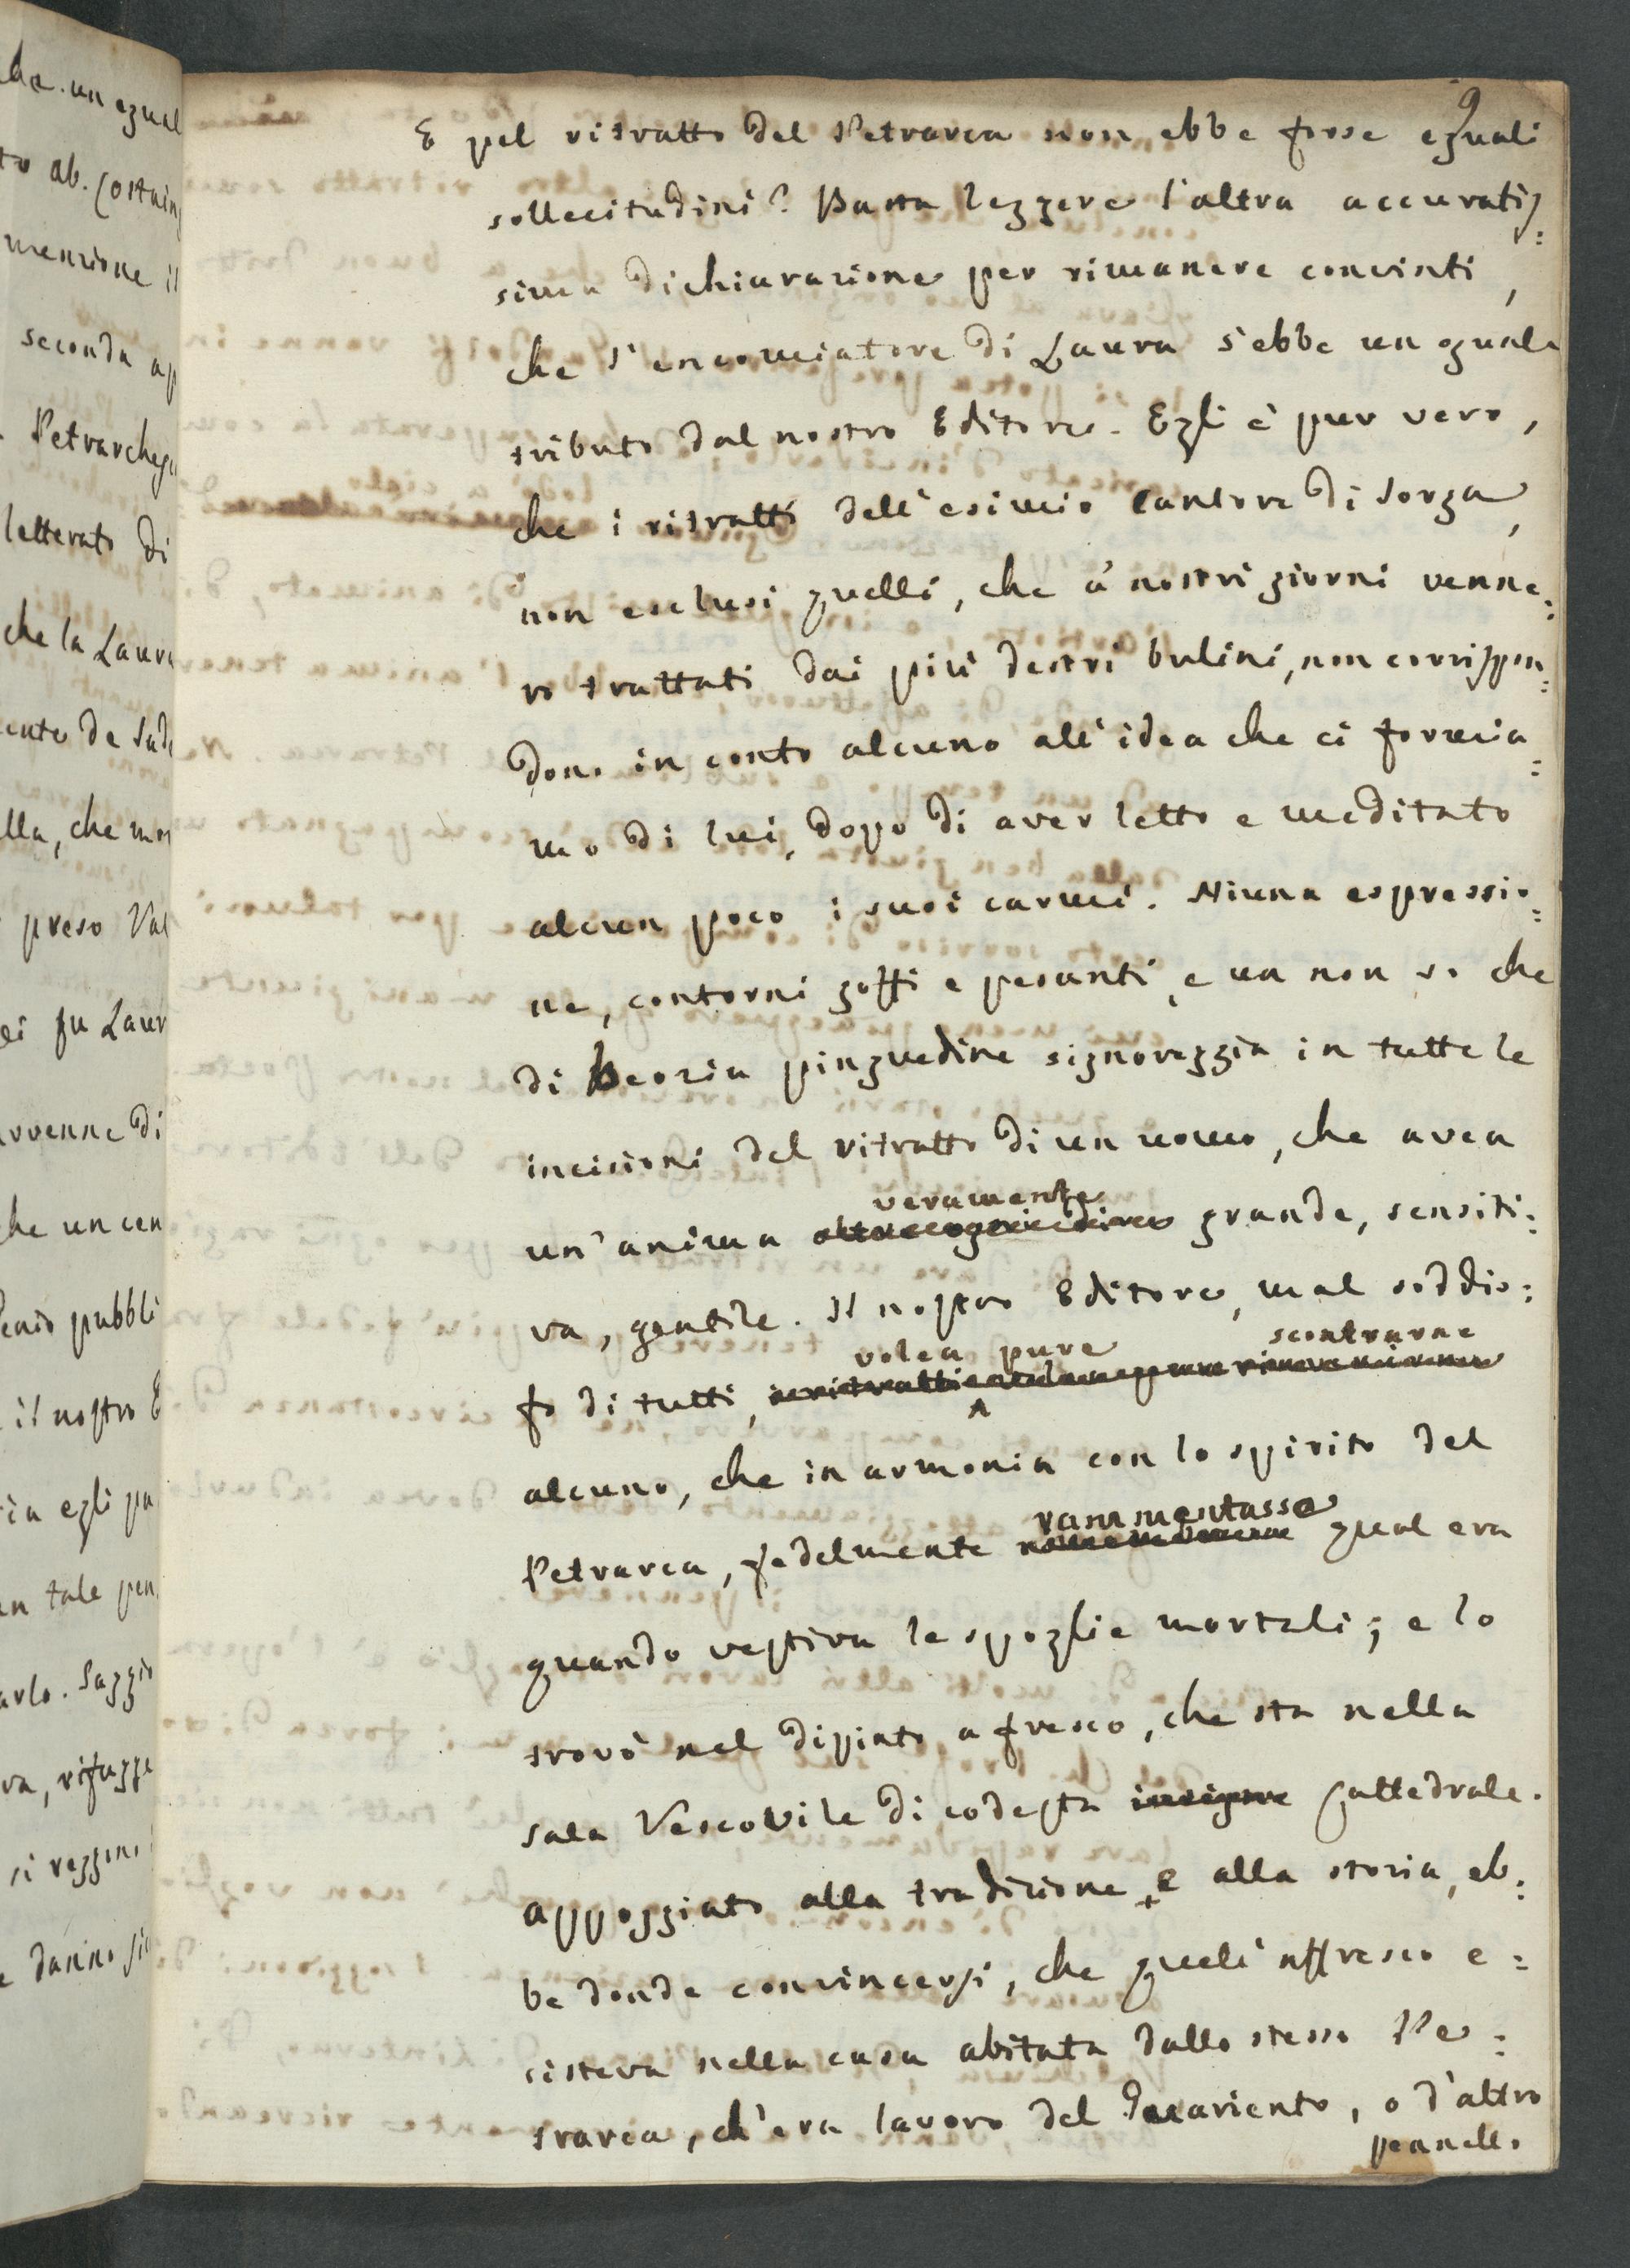 9
E pel ritratto del Petrarca non ebbe forse eguali
sollecitudini? Basta leggere l'altra accuratis=
sima dichiarazione per rimanere convinti,
che l'encomiatore di Laura s'ebbe un eguale
tributo dal nostro Editore. Egli è pur vero,
che i ritratti dell'esimio Cantore di Sorga,
non esclusi quelli, che a' nostri giorni venne=
ro trattati dai più destri bulini, non corrispon=
dono in conto alcuno all'idea che ci formia=
mo di lui, dopo di aver letto e meditato
alcun poco i suoi carmi. Niuna espressio=
ne, contorni goffi e pesanti, e un non so che
di beozia pinguedine signoreggia in tutte le
incisioni del ritratto di un uomo, che avea
veramente
un'anima grande, sensiti=
va, gentile. Il nostro Editore, mal soddis=
volea pure scontrarne
fo di tutti,
alcuno, che in armonia con lo spirito del
rammentasse
Petrarca, fedelmente qual era
quando vestiva le spoglie mortali; e lo
trovò nel dipinto a fresco, che sta nella
sala Vescovile di codesta insigne Cattedrale.
Appoggiato alla tradizione e alla storia, eb=
be donde convincersi, che quell'affresco e=
sisteva nella casa abitata dallo stesso Pe=
trarca, ch'era lavoro del Guariento, o d'altro
pennello
he un egual
to ab. Costain
menzione il
seconda ap
Petrarche
letterato di
che la Laura
ente de Sade
lla, che mor
preso Val
ei fu Laur
avvenne di
he un cen
pubbli
il nostro E
ia egli pu
un tale pen
arlo. Saggio
va, rifugge
si reggono
e danno